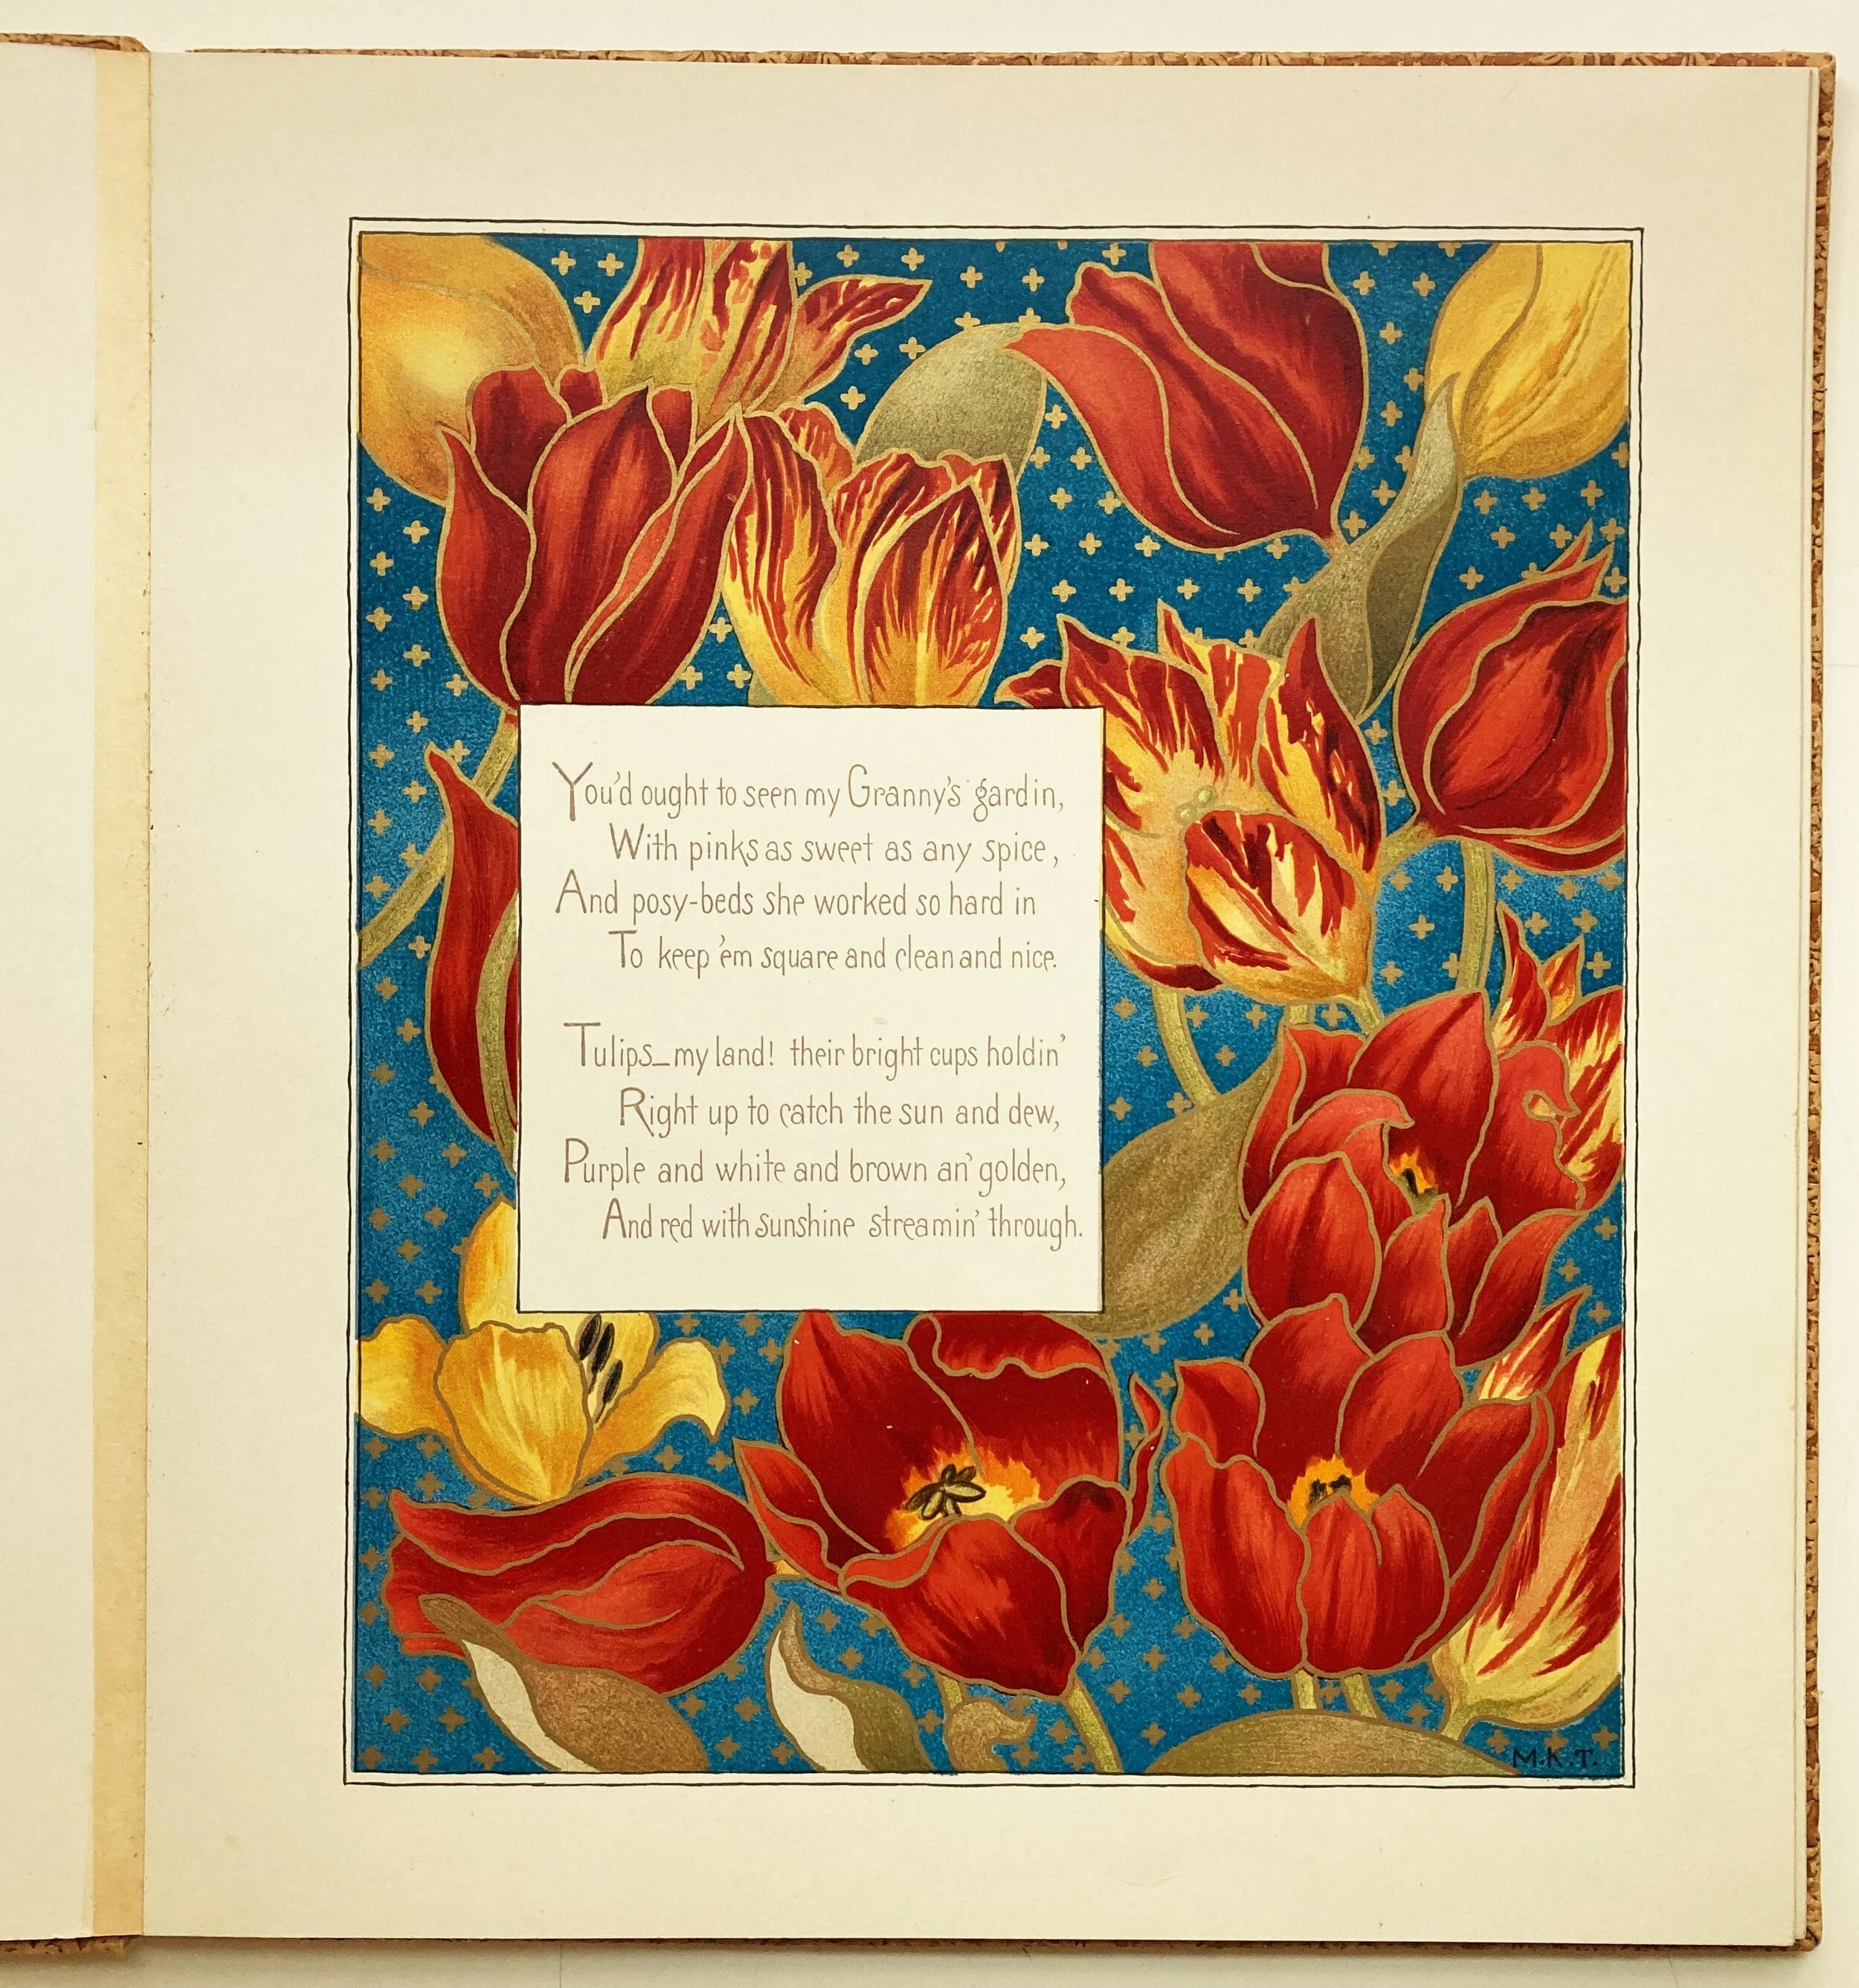 You'd ought to seen my Granny's gardin,
With pinks as sweet as any spice,
And posy-beds she worked so hard in
To keep 'em square and clean and nice.
Tulips—my land! their bright cups holdin'
Right up to catch the sun and dew,
Purple and white and brown an' golden,
And red with sunshine streamin' through.
M.K.T.